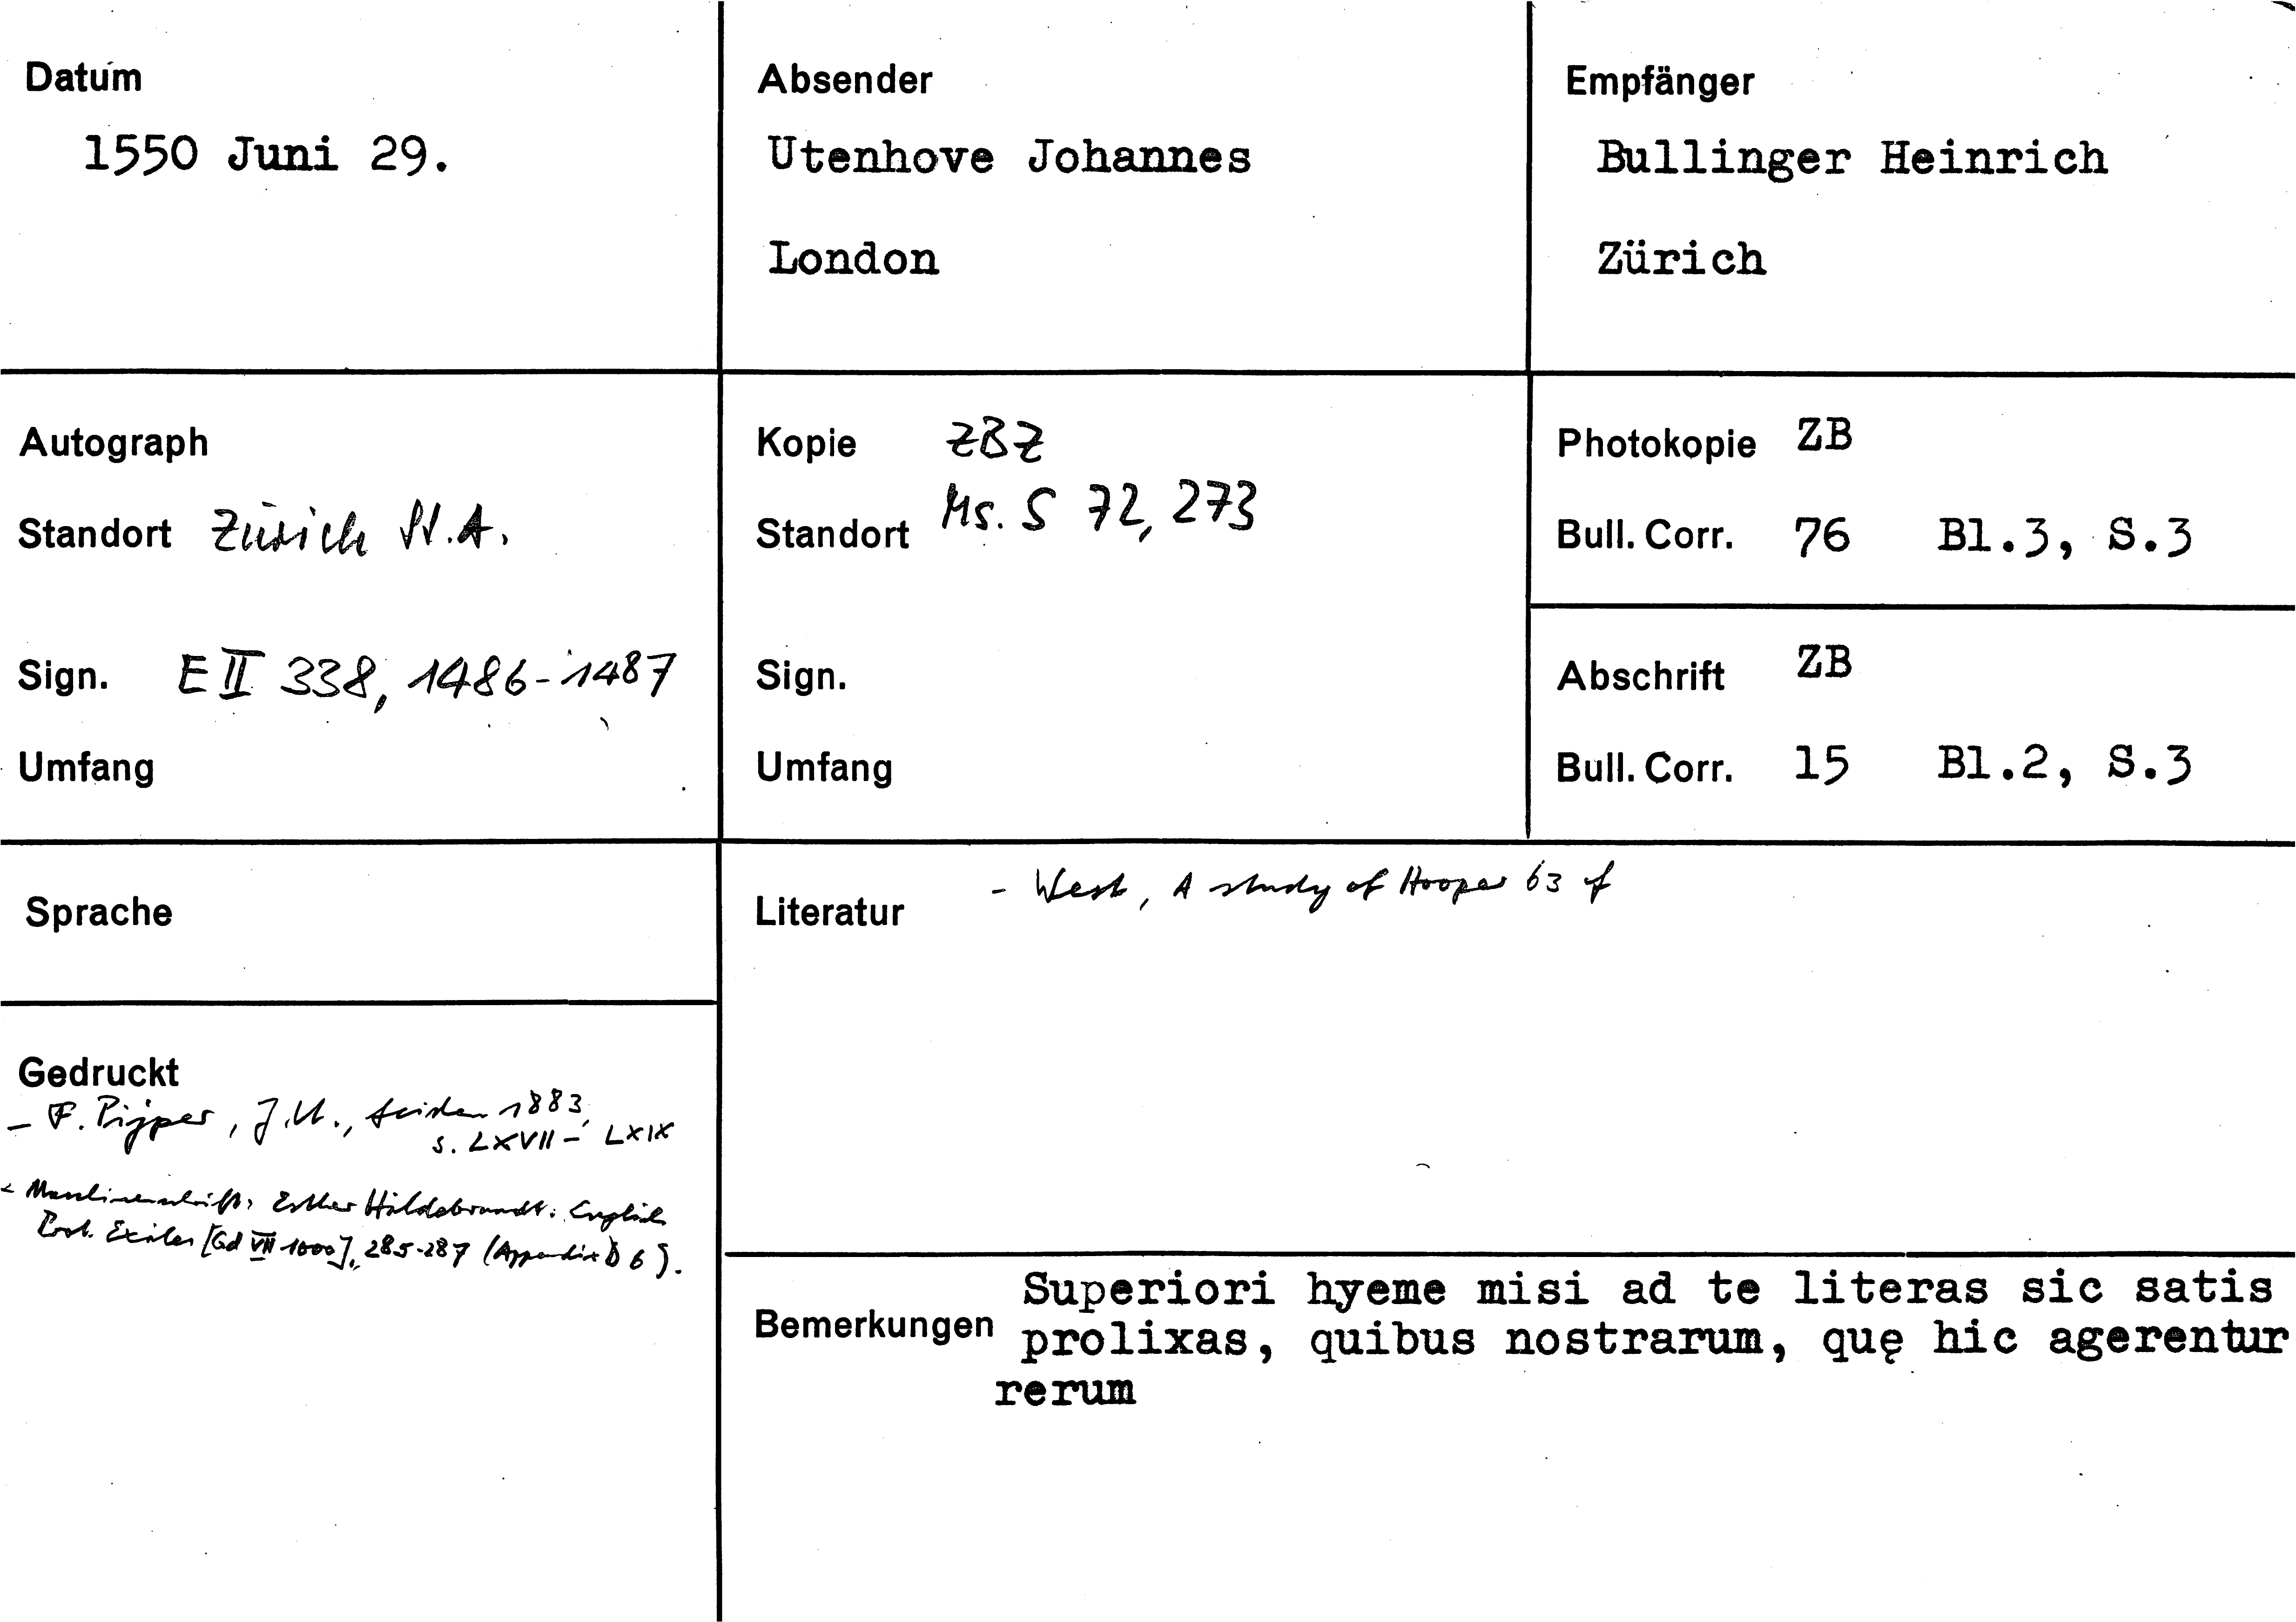 Datum
1550 Juni 29.
Absender
Utenhove Johannes
London
Empfänger
Bullinger Heinrich
Zürich
Autograph
Standort Zürich St.A.
Sign. E II 338, 1486-1487
Umfang
Kopie ZBZ
Standort Ms. S 72, 273
Sign.
Umfang
Photokopie ZB
Bull. Corr. 76 Bl.3, S.3
Abschrift ZB
Bull. Corr. 15 Bl.2, S.3
Sprache
Gedruckt
- F. Pijper, J.U., Leiden 1883,
S. LXVII - LXIX
- Maschinenschrift: Esther Hildebrandt: English
Prot. Exiles [Gd VII 1000], 285-287 (Appendix D 6).
Literatur - West, A study of Hooper 63 f
Bemerkungen Superiori hyeme misi ad te literas sic satis
prolixas, quibus nostrarum, quę hic agerentur
rerum